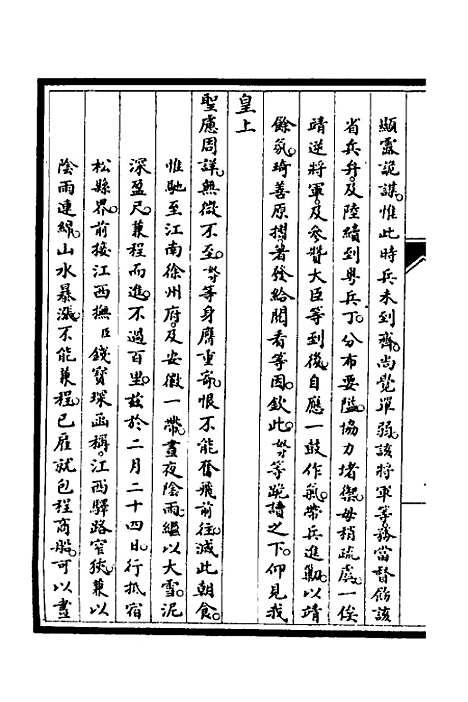 顯露詭謀。惟此時兵未到齊。尚覺單弱。該將軍等務當督飭該
省兵弁。及陸續到粵兵丁。分布要隘。協力堵禦。毋稍疏虞。一俟
靖逆將軍。及參贊大臣等到後。自應一鼓作氣。帶兵進勦。以靖
餘氛。琦善原摺著發給閱看等因。欽此。奴才等跪讀之下。仰見我
皇上
聖慮周詳。無微不至。奴才等身膺重寄。恨不能奮飛前往。滅此朝食。
惟馳至江南徐州府。及安徽一帶。晝夜陰雨。繼以大雪。泥
深盈尺。兼程而進。不過百里。茲於二月二十四日。行抵宿
松縣界。前接江西撫臣錢寶琛函稱。江西驛路窄狹。兼以
陰雨連綿。山水暴漲。不能兼程。已雇就包程商船。可以晝